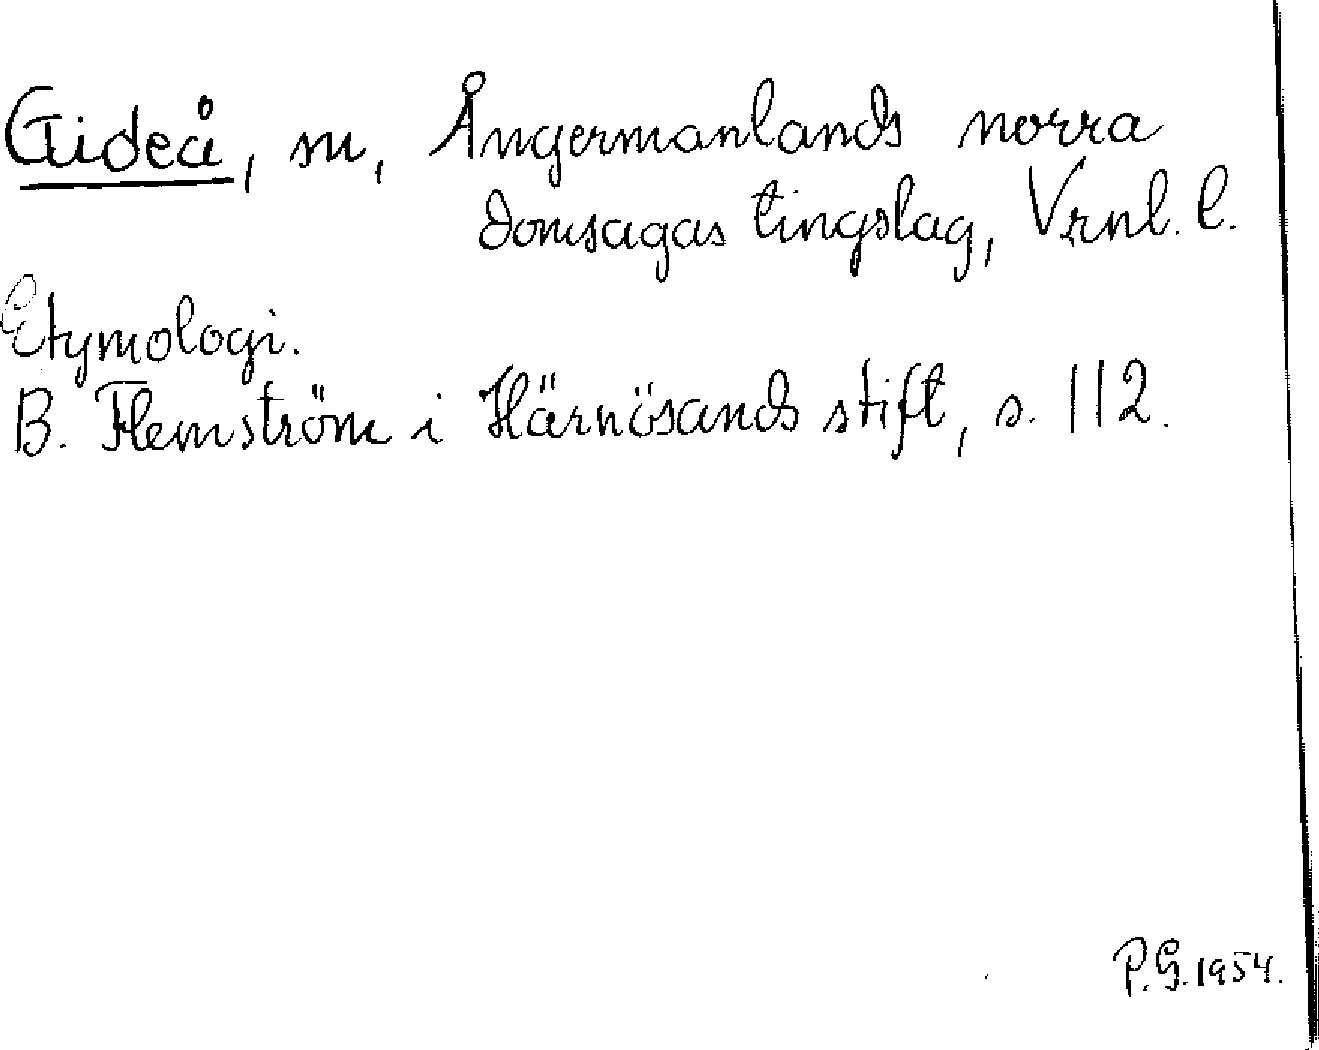 Gideå, sn, Ångermanlands norra
domsagas tingslag, Vrnl. l.
Etymologi.
B. Flemström i Härnösands stift, s. 112.
P.G. 1954.